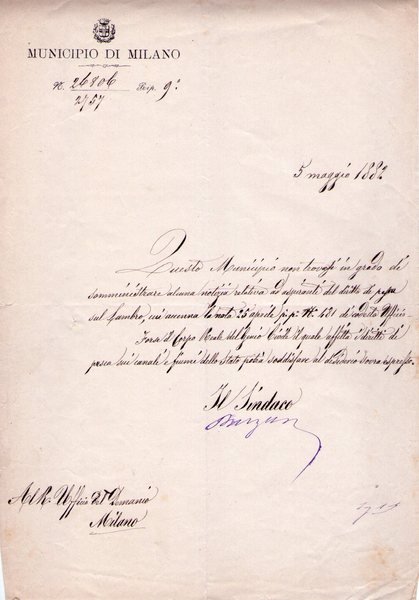 MUNICIPIO DI MILANO
N. 26806 Rip. 9ª
2757
5 maggio 1882
Questo Municipio non trovasi in grado di
somministrare alcuna notizia relativa ad aspiranti del diritto di pesca
sul Lambro, cui accenna la nota 25 aprile p.p. N. 431 di codesto Ufficio.
Forse il Corpo Reale del Genio Civile il quale affitta i diritti di
pesca sui canali e fiumi dello Stato potrà soddisfare al desiderio sovra espresso.
Il Sindaco
Al R. Ufficio del Demanio
Milano